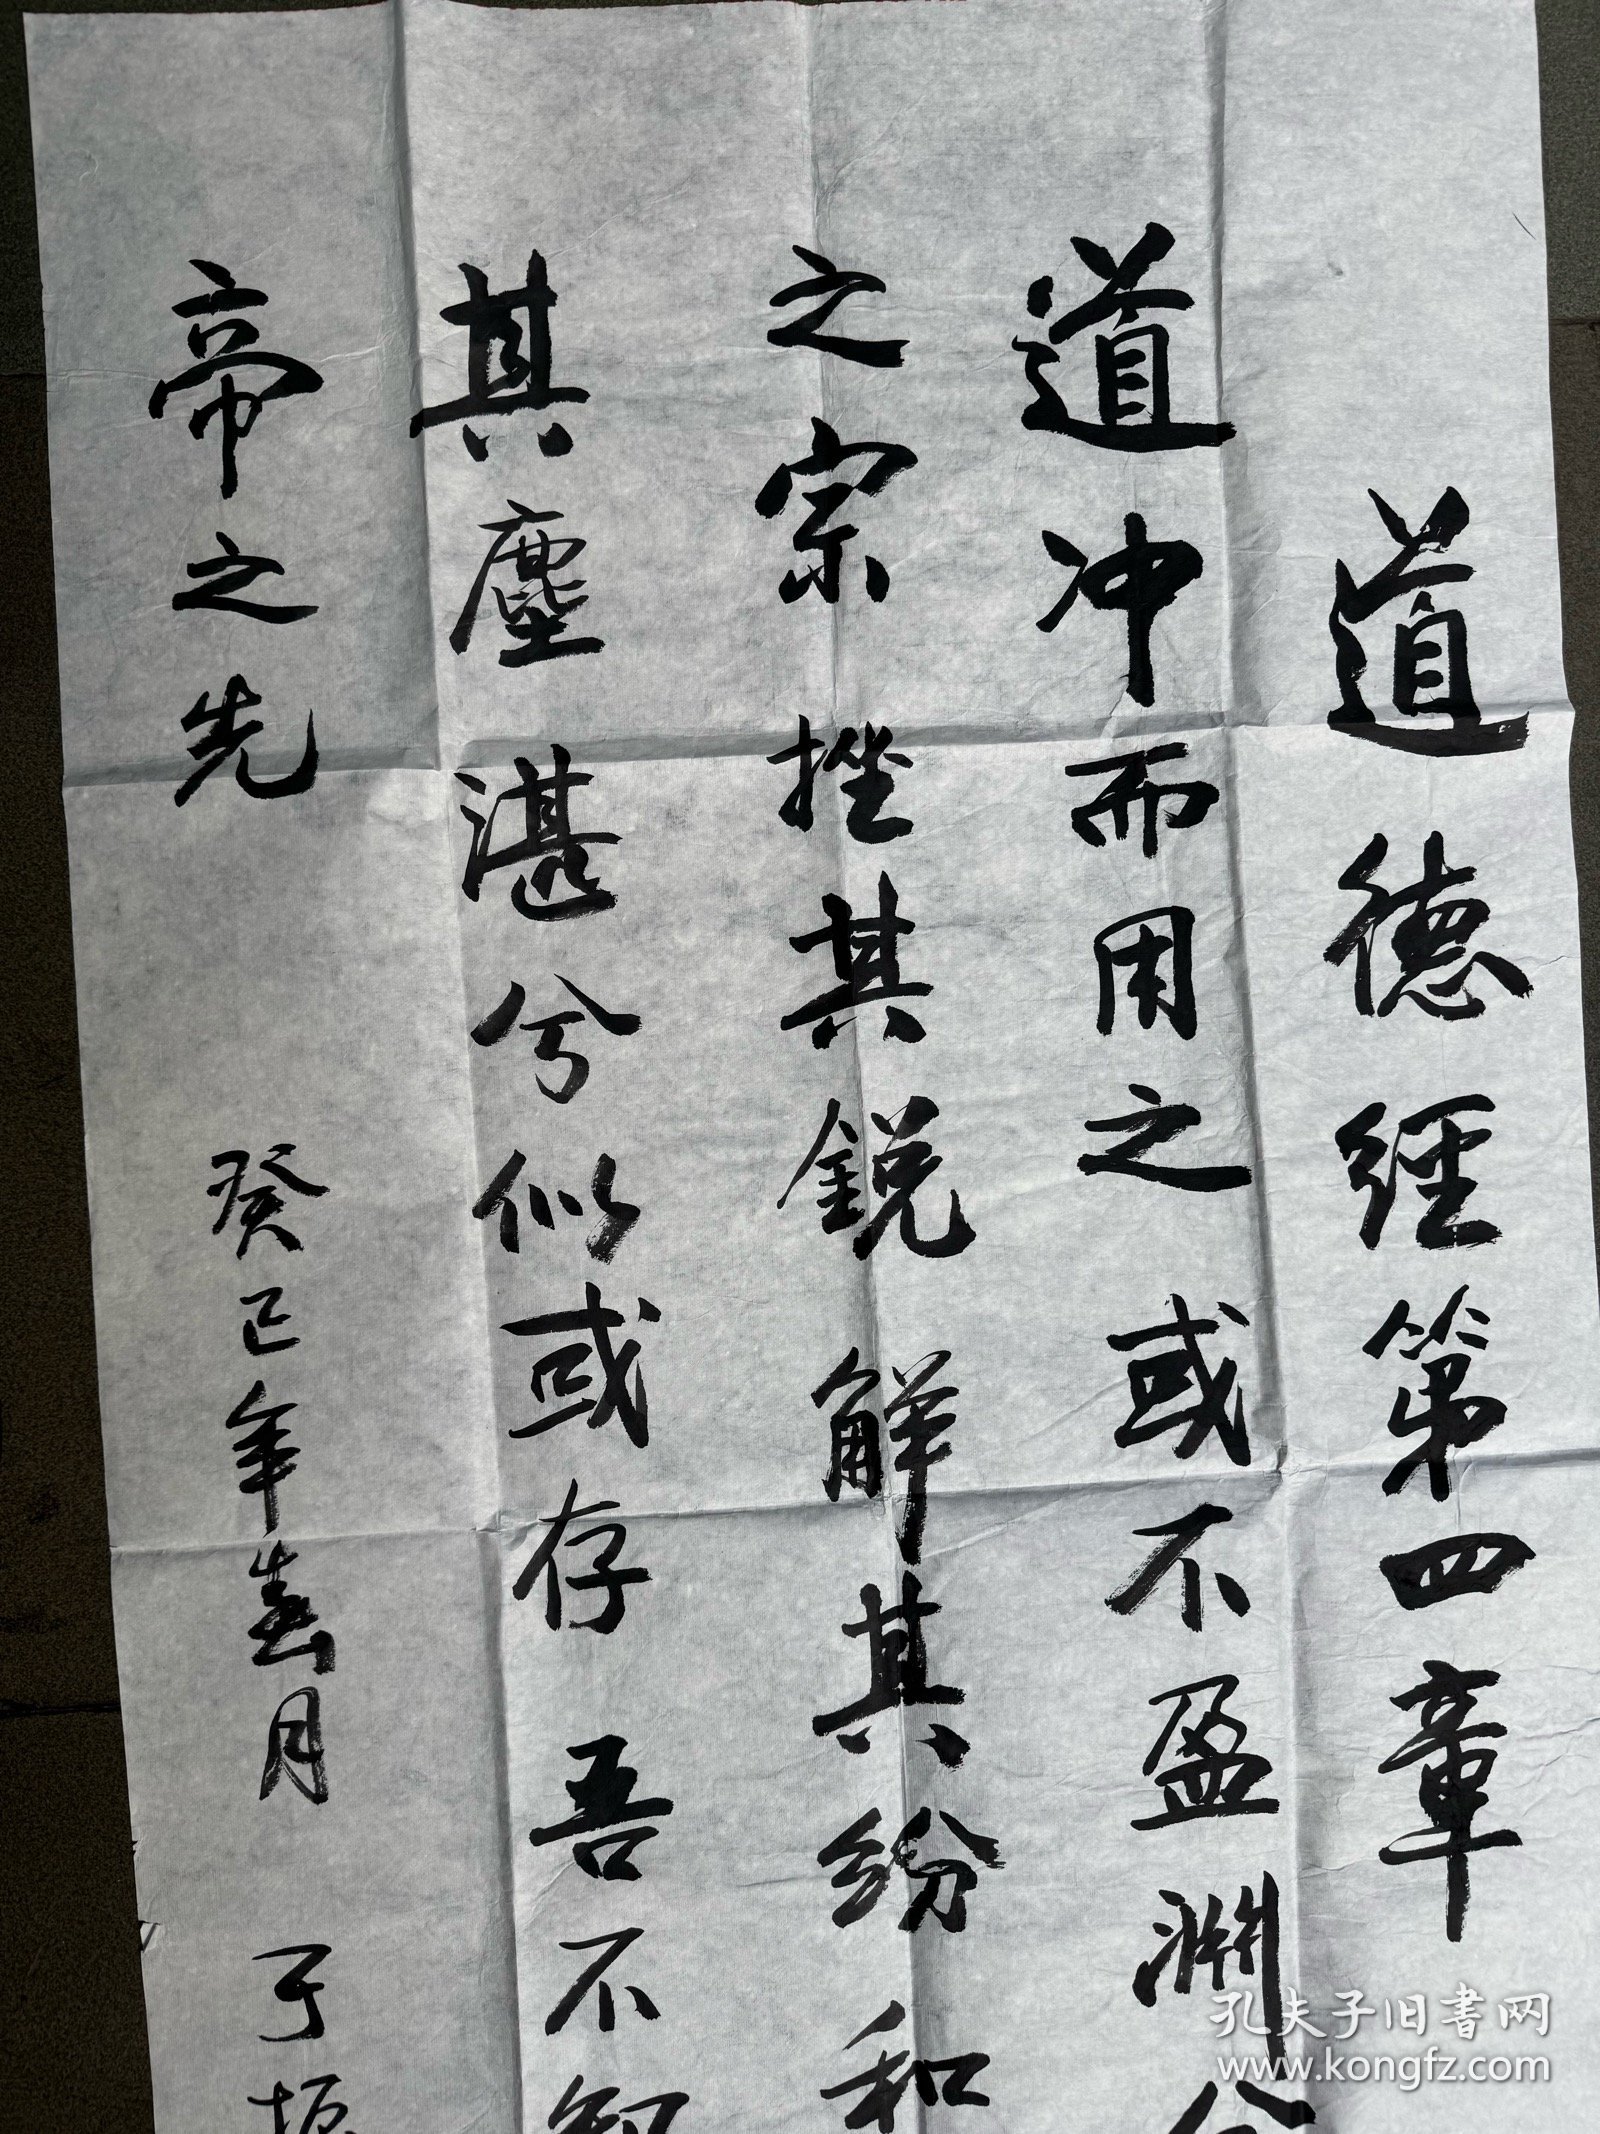 道德經第四章
道冲而用之或不盈淵兮
之宗挫其鋭解其紛和
其塵湛兮似或存吾不知
帝之先
癸巳年春月于振
孔夫子旧书网
www.kongfz.com